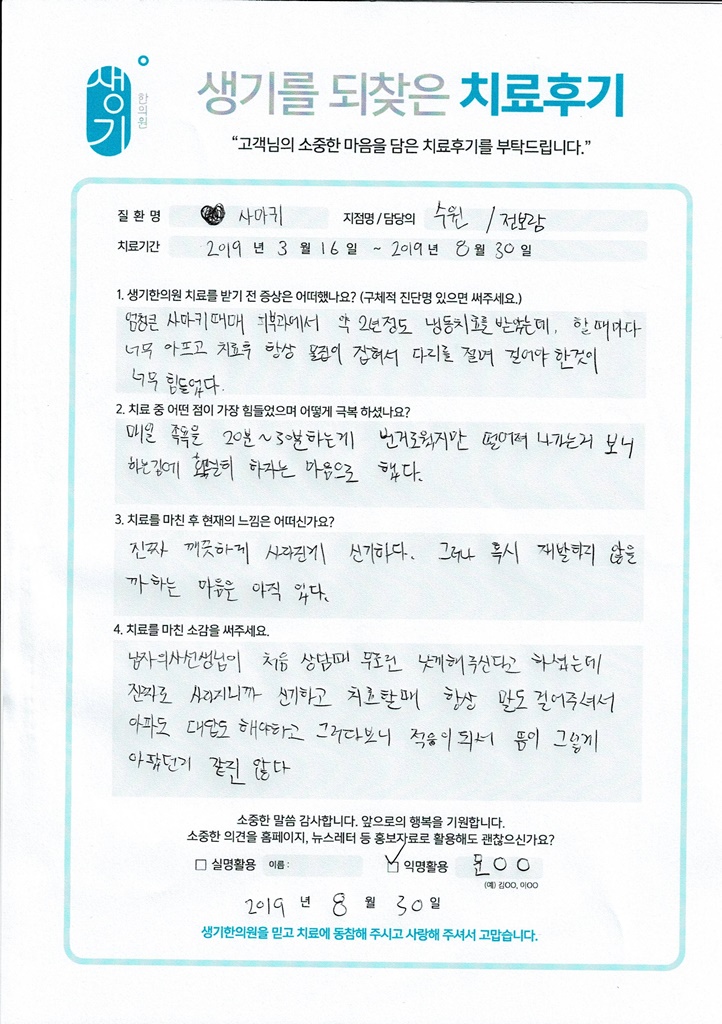 생기
한의원
생기를 되찾은 치료후기
“고객님의 소중한 마음을 담은 치료후기를 부탁드립니다.”
질 환 명 사마귀 지점명 / 담당의 수원 / 전보람
치료기간 2019 년 3 월 16 일 ~ 2019 년 8 월 30 일
1. 생기한의원 치료를 받기 전 증상은 어떠했나요? (구체적 진단명 있으면 써주세요.)
엄청큰 사마귀때매 피부과에서 약 2년정도 냉동치료를 받았는데, 할때마다
너무 아프고 치료후 항상 물집이 잡혀서 다리를 절며 걸어야 한것이
너무 힘들었다.
2. 치료 중 어떤 점이 가장 힘들었으며 어떻게 극복 하셨나요?
매일 족욕을 20분~30분하는게 번거로웠지만 떨어져 나가는거 보니
하는김에 확실히 하자는 마음으로 했다.
3. 치료를 마친 후 현재의 느낌은 어떠신가요?
진짜 깨끗하게 사라진게 신기하다. 그러나 혹시 재발하지 않을
까 하는 마음은 아직 있다.
4. 치료를 마친 소감을 써주세요.
남자의사선생님이 처음 상담때 무조건 낫게해주신다고 하셨는데
진짜로 사라지니까 신기하고 치료할때 항상 말도 걸어주셔서
아파도 대답도 해야하고 그러다보니 적응이 되서 뜸이 그렇게
아팠던거 같진 않다
소중한 말씀 감사합니다. 앞으로의 행복을 기원합니다.
소중한 의견을 홈페이지, 뉴스레터 등 홍보자료로 활용해도 괜찮으신가요?
실명활용 이름 : 익명활용 문OO
(예) 김OO, 이OO
2019 년 8 월 30 일
생기한의원을 믿고 치료에 동참해 주시고 사랑해 주셔서 고맙습니다.